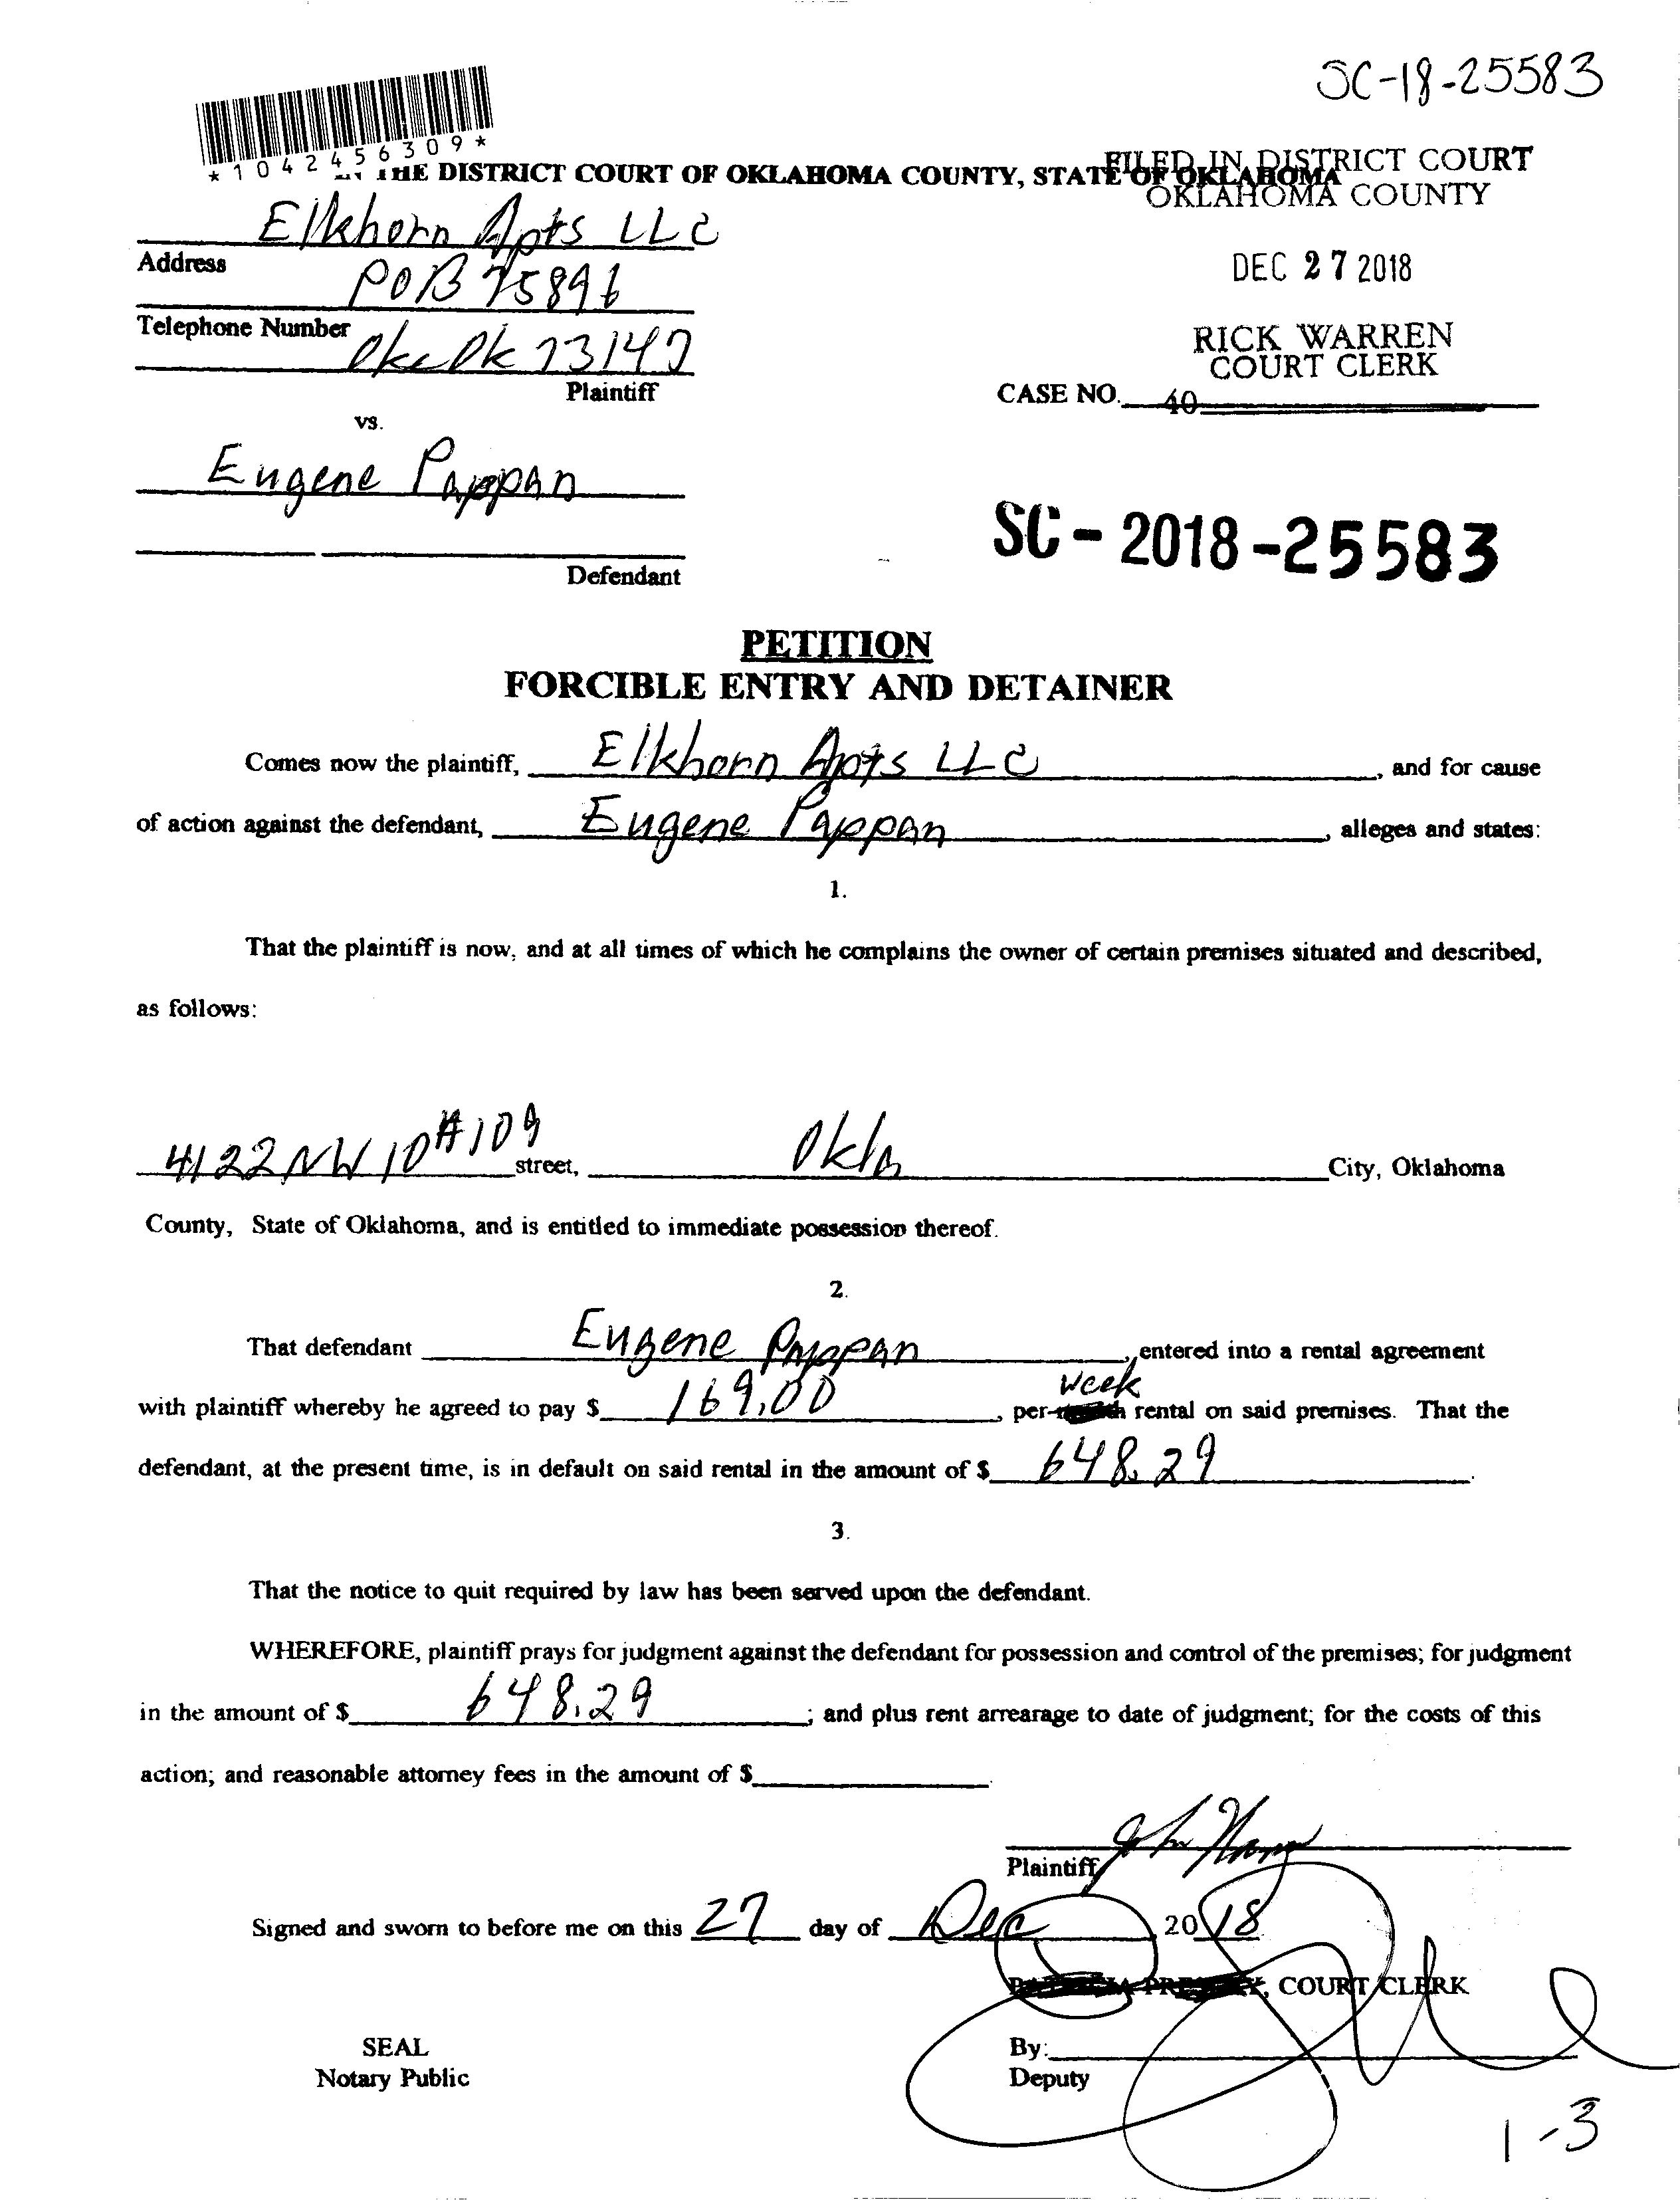 SC-18-25583
*1042456309*
THE DISTRICT COURT OF OKLAHOMA COUNTY, STATE OF OKLAHOMA
FILED IN DISTRICT COURT
OKLAHOMA COUNTY
Elkhorn Apts LLC
Address
POB 75896
DEC 27 2018
Telephone Number
Okc Ok 73147
RICK WARREN
COURT CLERK
Plaintiff
CASE NO. 40
vs.
Eugene Pappan
SC-2018-25583
Defendant
PETITION
FORCIBLE ENTRY AND DETAINER
Comes now the plaintiff, Elkhorn Apts LLC, and for cause
of action against the defendant, Eugene Pappan, alleges and states:
1.
That the plaintiff is now, and at all times of which he complains the owner of certain premises situated and described,
as follows:
4122 NW 10 #109 street, Okla City, Oklahoma
County, State of Oklahoma, and is entitled to immediate possession thereof.
2.
That defendant Eugene Pappan, entered into a rental agreement
with plaintiff whereby he agreed to pay $ 169.00, per week rental on said premises. That the
defendant, at the present time, is in default on said rental in the amount of $ 648.29.
3.
That the notice to quit required by law has been served upon the defendant.
WHEREFORE, plaintiff prays for judgment against the defendant for possession and control of the premises; for judgment
in the amount of $ 648.29; and plus rent arrearage to date of judgment; for the costs of this
action; and reasonable attorney fees in the amount of $
John
Plaintiff
Signed and sworn to before me on this 27 day of Dec 2018
, COURT CLERK
SEAL
Notary Public
By:
Deputy
1-3